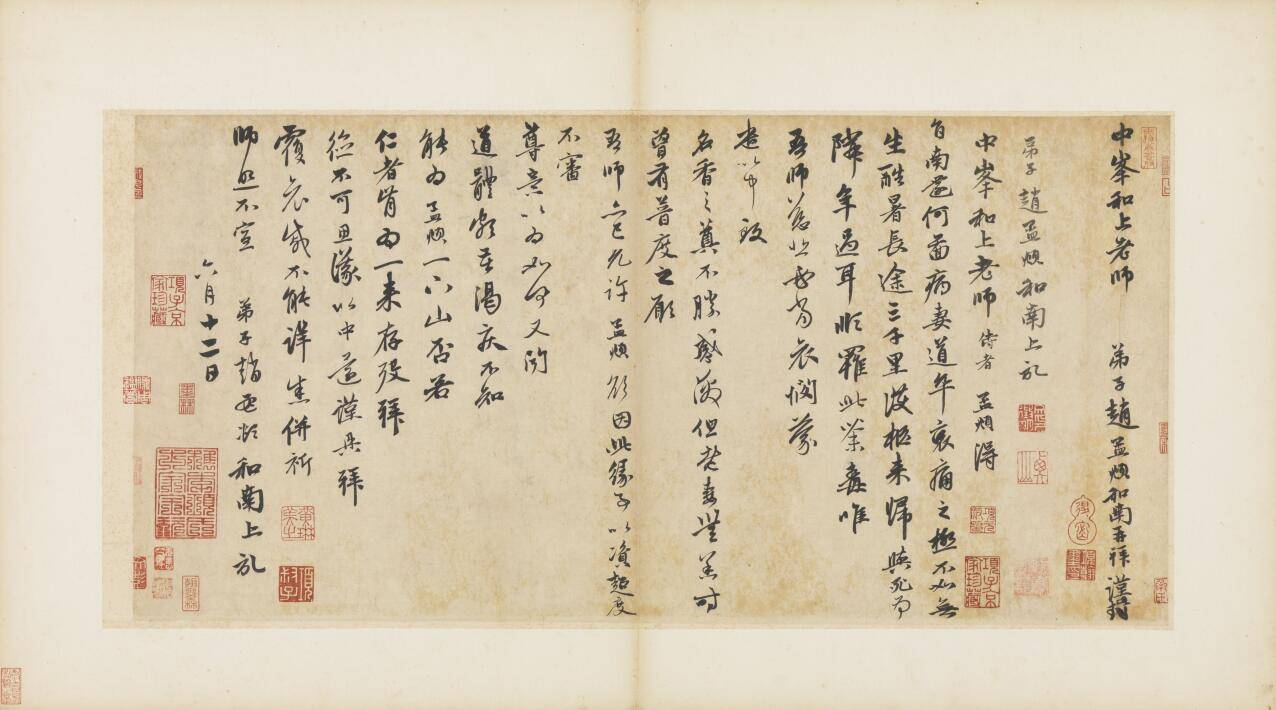 中峯和上老師　弟子趙孟頫和南再拜謹封
弟子趙孟頫和南上記
中峯和上老師侍者孟頫得
旨南還何圖病妻道卒哀痛之極不如無
生酷暑長途三千里護柩來歸與死為
隣年過耳順罹此荼毒唯
吾師慈悲必當哀憫蒙
遣以中致
名香之奠不勝感激但老妻無恙時
曾有普度之願
吾師亦已允許孟頫欲因此緣事以資超度
不審
尊意以為如何又聞
道體頗苦渴疾不知
能為孟頫一下山否若
仁者肯為一來存歿拜
德不可思議以中還謹具拜
覆哀感不能詳悉併祈
師照不宣　弟子趙孟頫和南上記
六月十二日
項子京家珍藏
項叔子